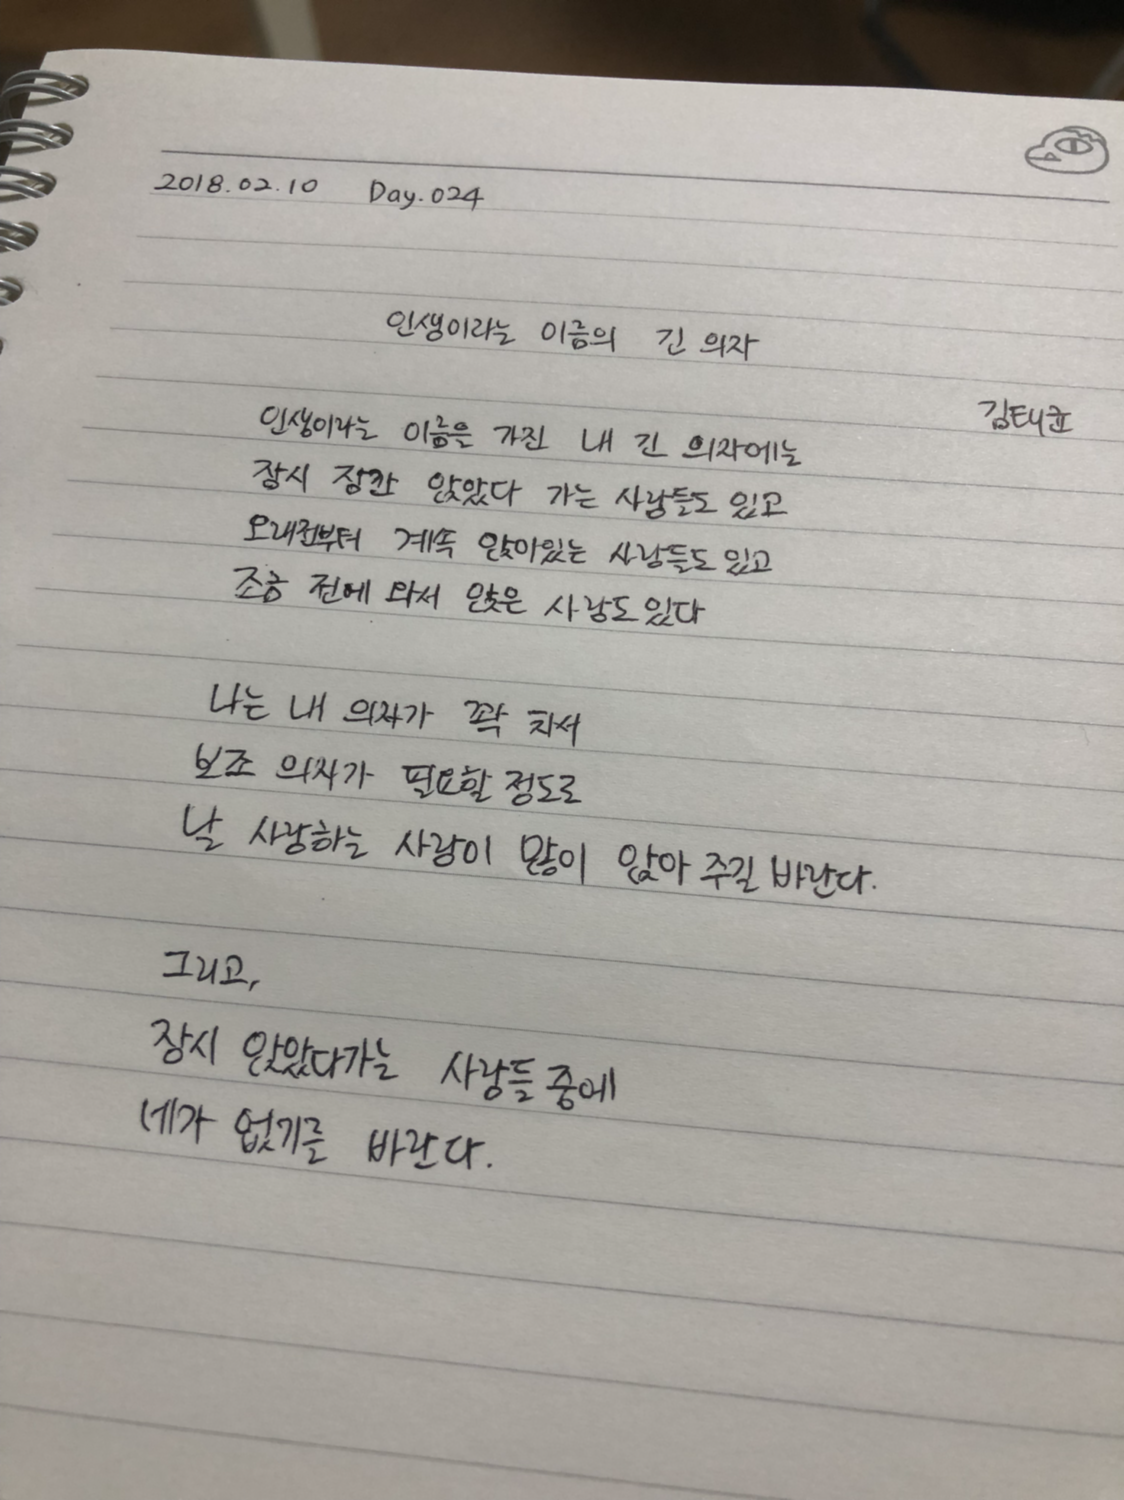 2018.02.10 Day.024
인생이라는 이름의 긴 의자
김태균
인생이라는 이름을 가진 내 긴 의자에는
잠시 잠깐 앉았다 가는 사람들도 있고
오래전부터 계속 앉아있는 사람들도 있고
조금 전에 와서 앉은 사람도 있다
나는 내 의자가 꽉 차서
보조 의자가 필요할 정도로
날 사랑하는 사람이 많이 앉아 주길 바란다.
그리고,
잠시 앉았다가는 사람들 중에
네가 없기를 바란다.